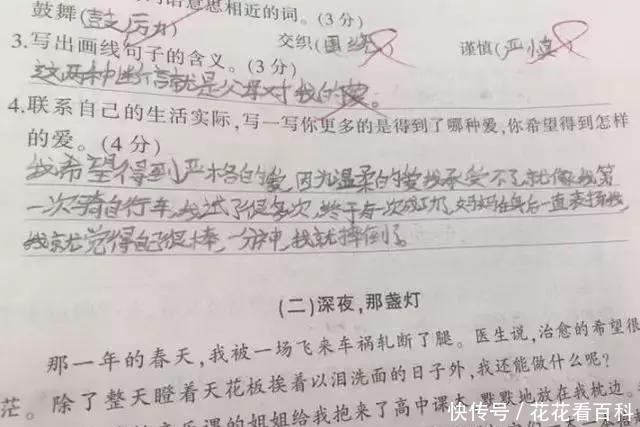 语意思相近的词。(3分)
鼓舞(鼓厉力) 交织(围绕) 谨慎(严慎)
3.写出画线句子的含义。(3分)
这两种 言就是父母对我的爱。
4.联系自己的生活实际,写一写你更多的是得到了哪种爱,你希望得到怎样
的爱。(4分)
我希望得到严格的爱,因为温柔的爱我承受不了,就像我第
一次骑自行车,我试了很多次,终于有一次成功了,妈妈在身后一直表扬我,
我就觉得自己很棒,一分神,我就摔倒了。
(二)深夜,那盏灯
那一年的春天,我被一场飞来车祸轧断了腿。医生说,治愈的希望很
茫。除了整天瞪着天花板挨着以泪洗面的日子外,我还能做什么呢?
课的姐姐给我抱来了高中课本,默默地放在我枕边。
快传号/花花看百科